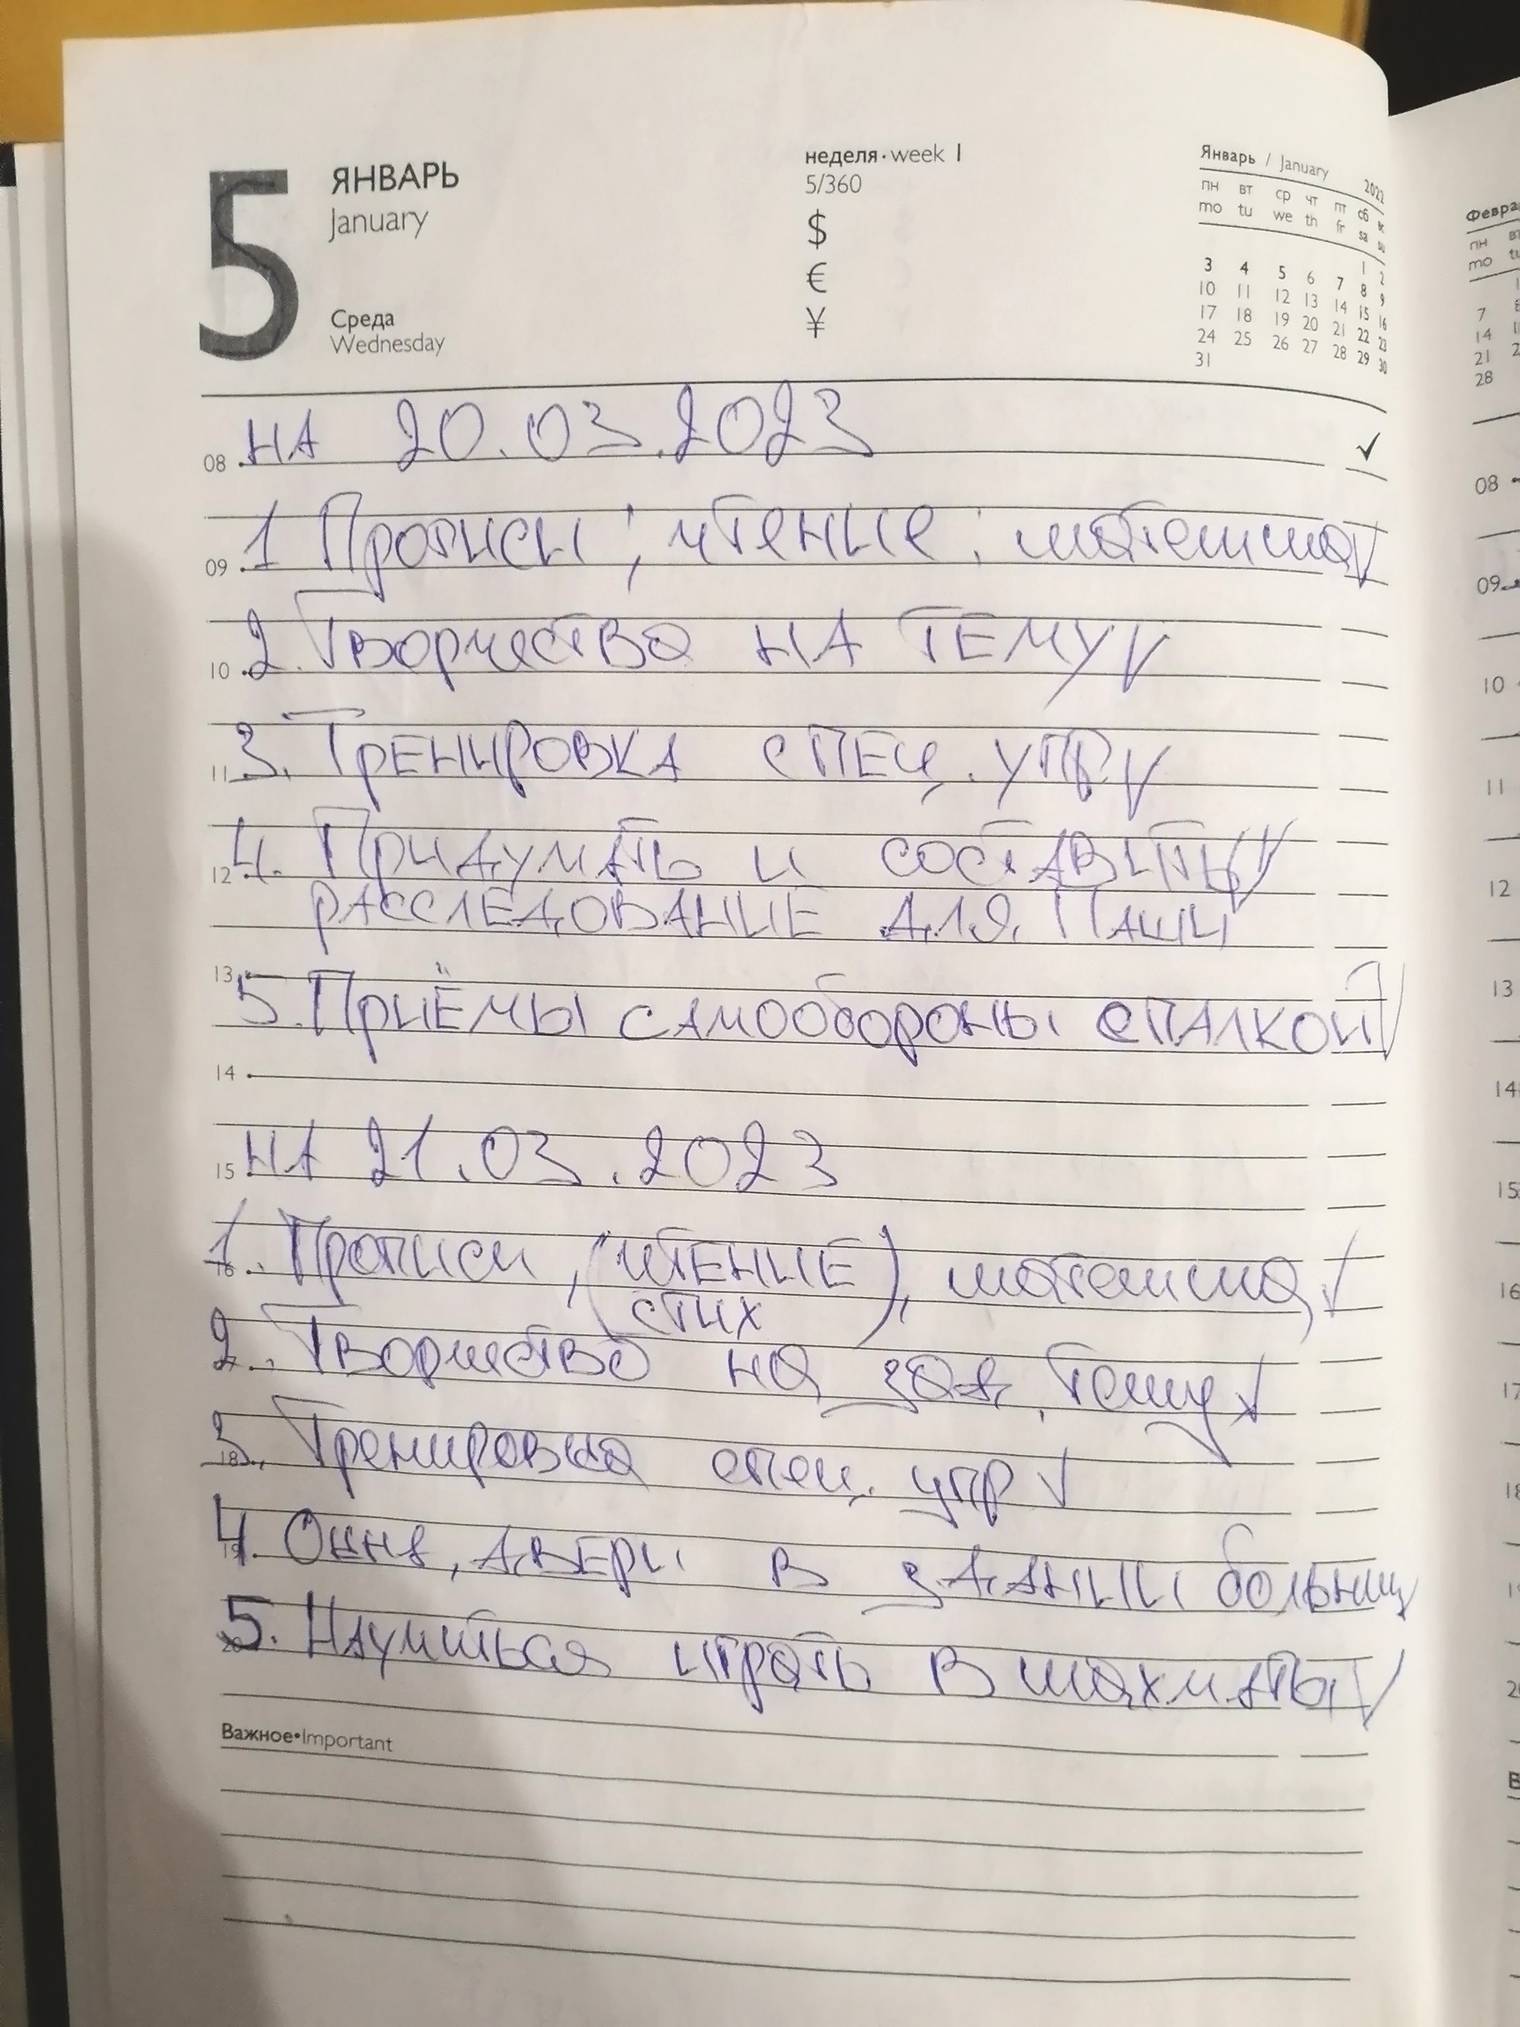 5
ЯНВАРЬ
January
Среда
Wednesday
неделя·week 1
5/360
$
€
¥
Январь / January 2022
пн вт ср чт пт сб вс
mo tu we th fr sa su
1 2
3 4 5 6 7 8 9
10 11 12 13 14 15 16
17 18 19 20 21 22 23
24 25 26 27 28 29 30
31
08 НА 20.03.2023 ✓
09 1 Прописи, чтение, математика √
10 2. Творчество НА ТЕМУ √
11 3. ТРЕНИРОВКА СПЕЦ. УПР √
12 4. ПРИДУМАТЬ И СОСТАВИТЬ √
РАССЛЕДОВАНИЕ ДЛЯ ПАШИ
13 5. ПРИЁМЫ САМООБОРОНЫ С ПАЛКОЙ √
14
15 НА 21.03.2023
16 1. Прописи, (ЧТЕНИЕ), математика, √
СТИХ
2. Творчество на тему √
18 3. Тренировка спец. упр √
19 4. Окна, ДВЕРИ В ЗДАНИИ больниц
20 5. Научиться играть в шахматы √
Важное•Important
Февра
пн вт
mo tu
7
14
21
28
08
09
10
11
12
13
14
15
16
17
18